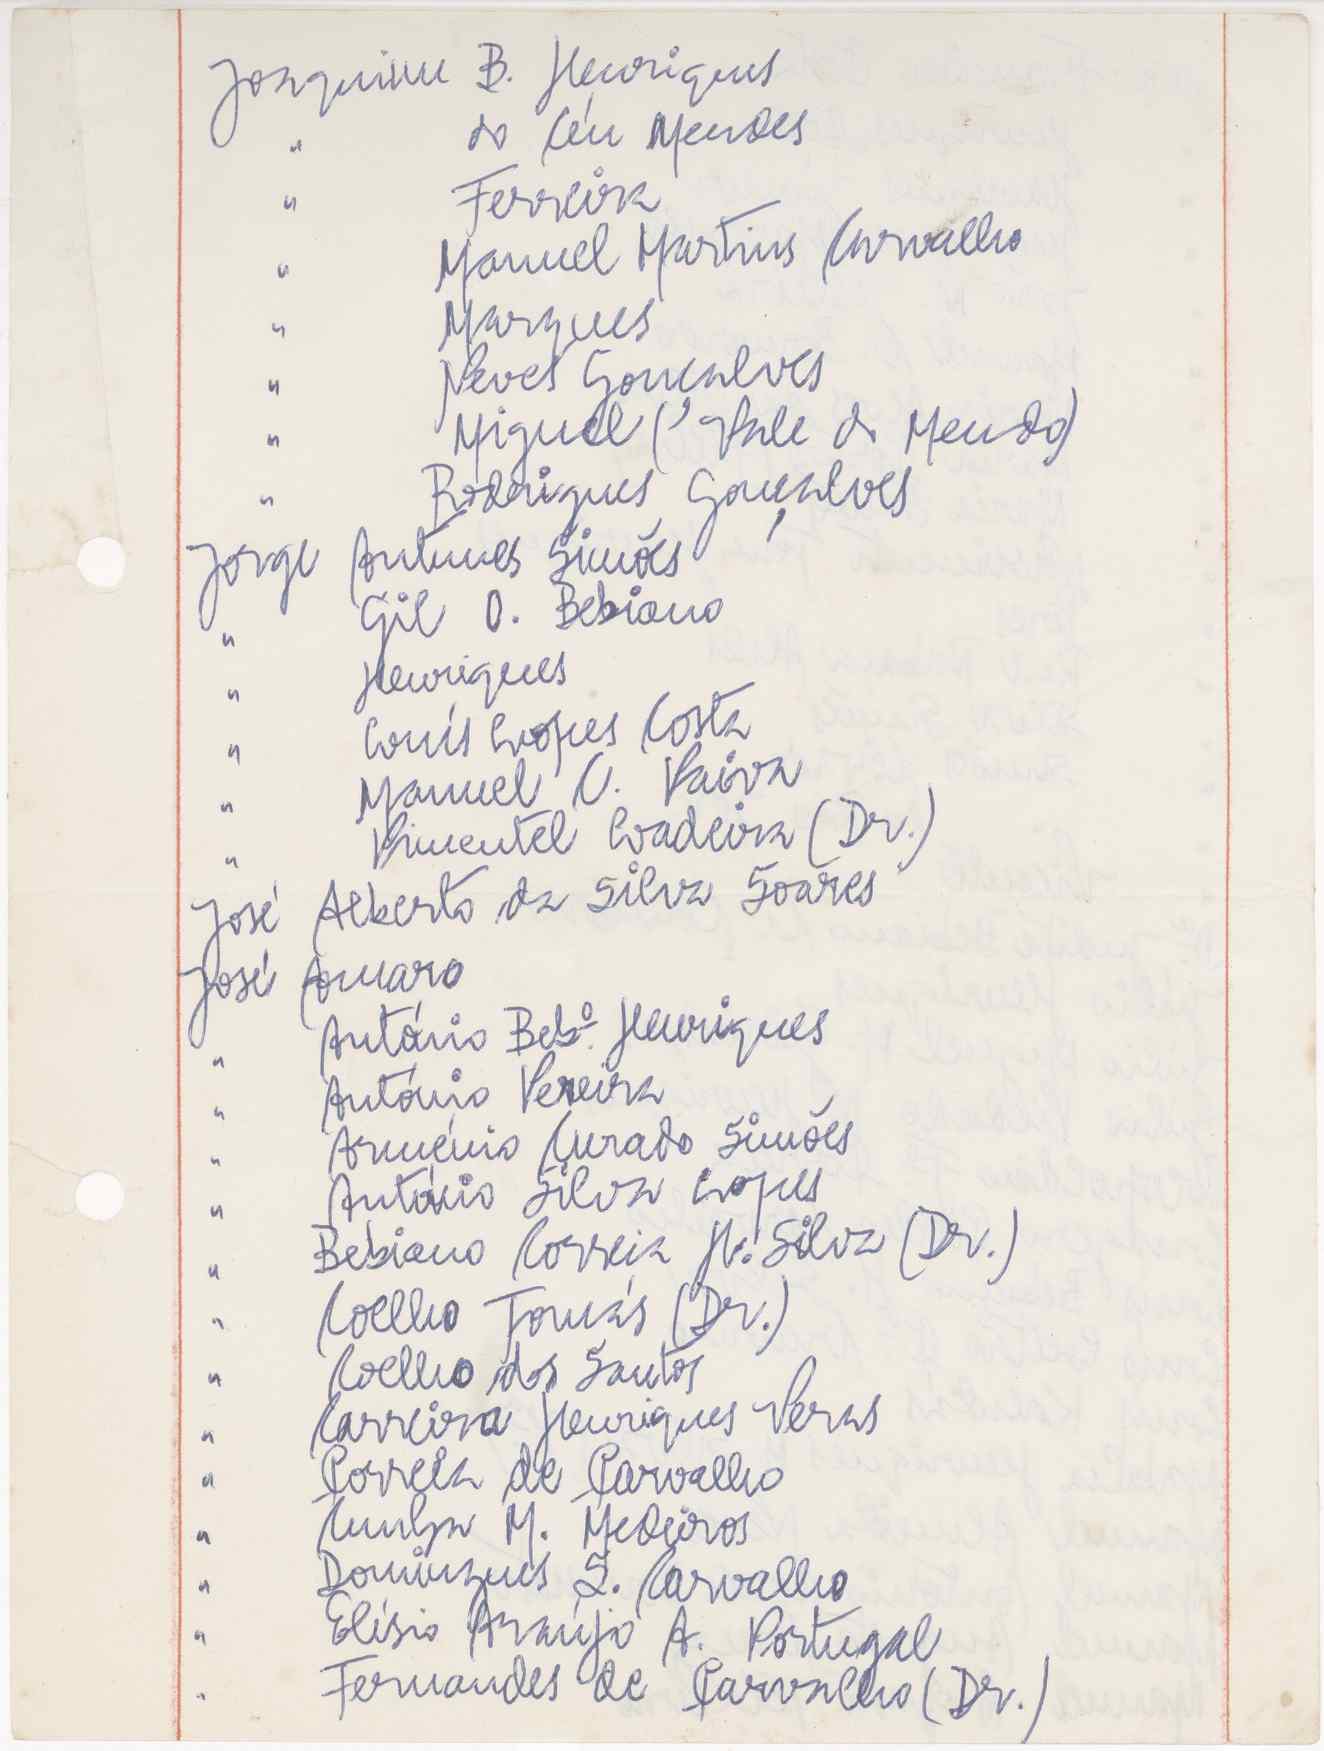 Joaquim B. Henriques
" do Céu Mendes
" Ferreira
" Manuel Martins Carvalho
" Marques
" Neves Gonçalves
" Miguel (Vale do Mendo)
" Rodrigues Gonçalves
Jorge Antunes Simões
" Gil O. Bebiano
" Henriques
" Louís Lopes Costa
" Manuel C. Paiva
" Pimentel Ladeira (Dr.)
José Alberto da Silva Soares
José Amaro
" António Bebº. Henriques
" António Pereira
" Arménio Curado Simões
" António Silva Lopes
" Bebiano Correia H. Silva (Dr.)
" Coelho Tomás (Dr.)
" Coelho dos Santos
" Carreira Henriques Veras
" Correia de Carvalho
" Cunha M. Medeiros
" Domingues S. Carvalho
" Elísio Araújo A. Portugal
" Fernandes de Carvalho (Dr.)